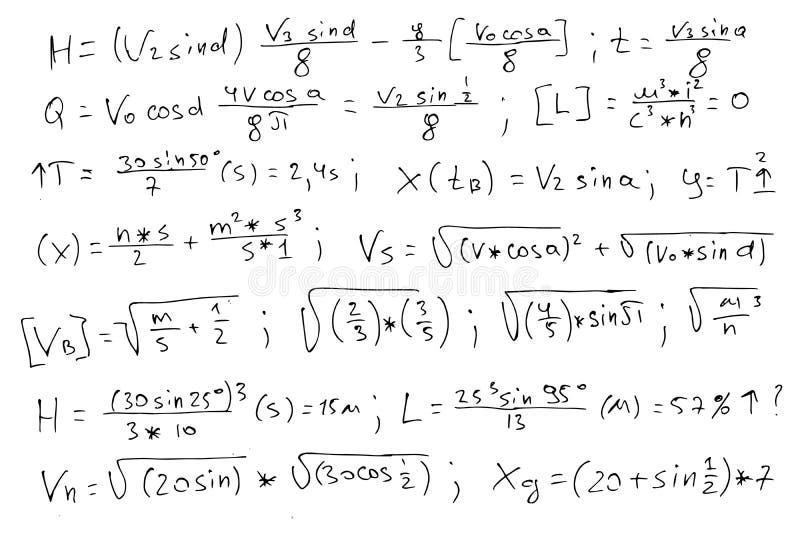 H = (V₂sind) (V₃ sind)/8 - y/3 [(V₀cosa)/8] ; t = (V₃sina)/8
Q = V₀cosd (4Vcosa)/(8π) = (V₂ sin 1/2)/8 ; [L] = (м³*i²)/(c³*h³) = 0
↑T = (30sin50°)/7 (s) = 2,4s ; x(t_B) = V₂ sina ; y = T↑²
(x) = (n*s)/2 + (m²*s³)/(s*1) ; Vs = √(V*cosa)² + √(V₀*sind)
[V_B] = √(m/s + 1/2) ; √(2/3)*(3/5) ; √(4/5)*sinπ ; √(м/n)³
H = (30sin25°)³/(3*10) (s) = 15м ; L = (25³sin95°)/13 (м) = 57% ↑ ?
Vn = √(20sin) * √(30cos 1/2) ; Xg = (20+sin 1/2)*7
dreamstime